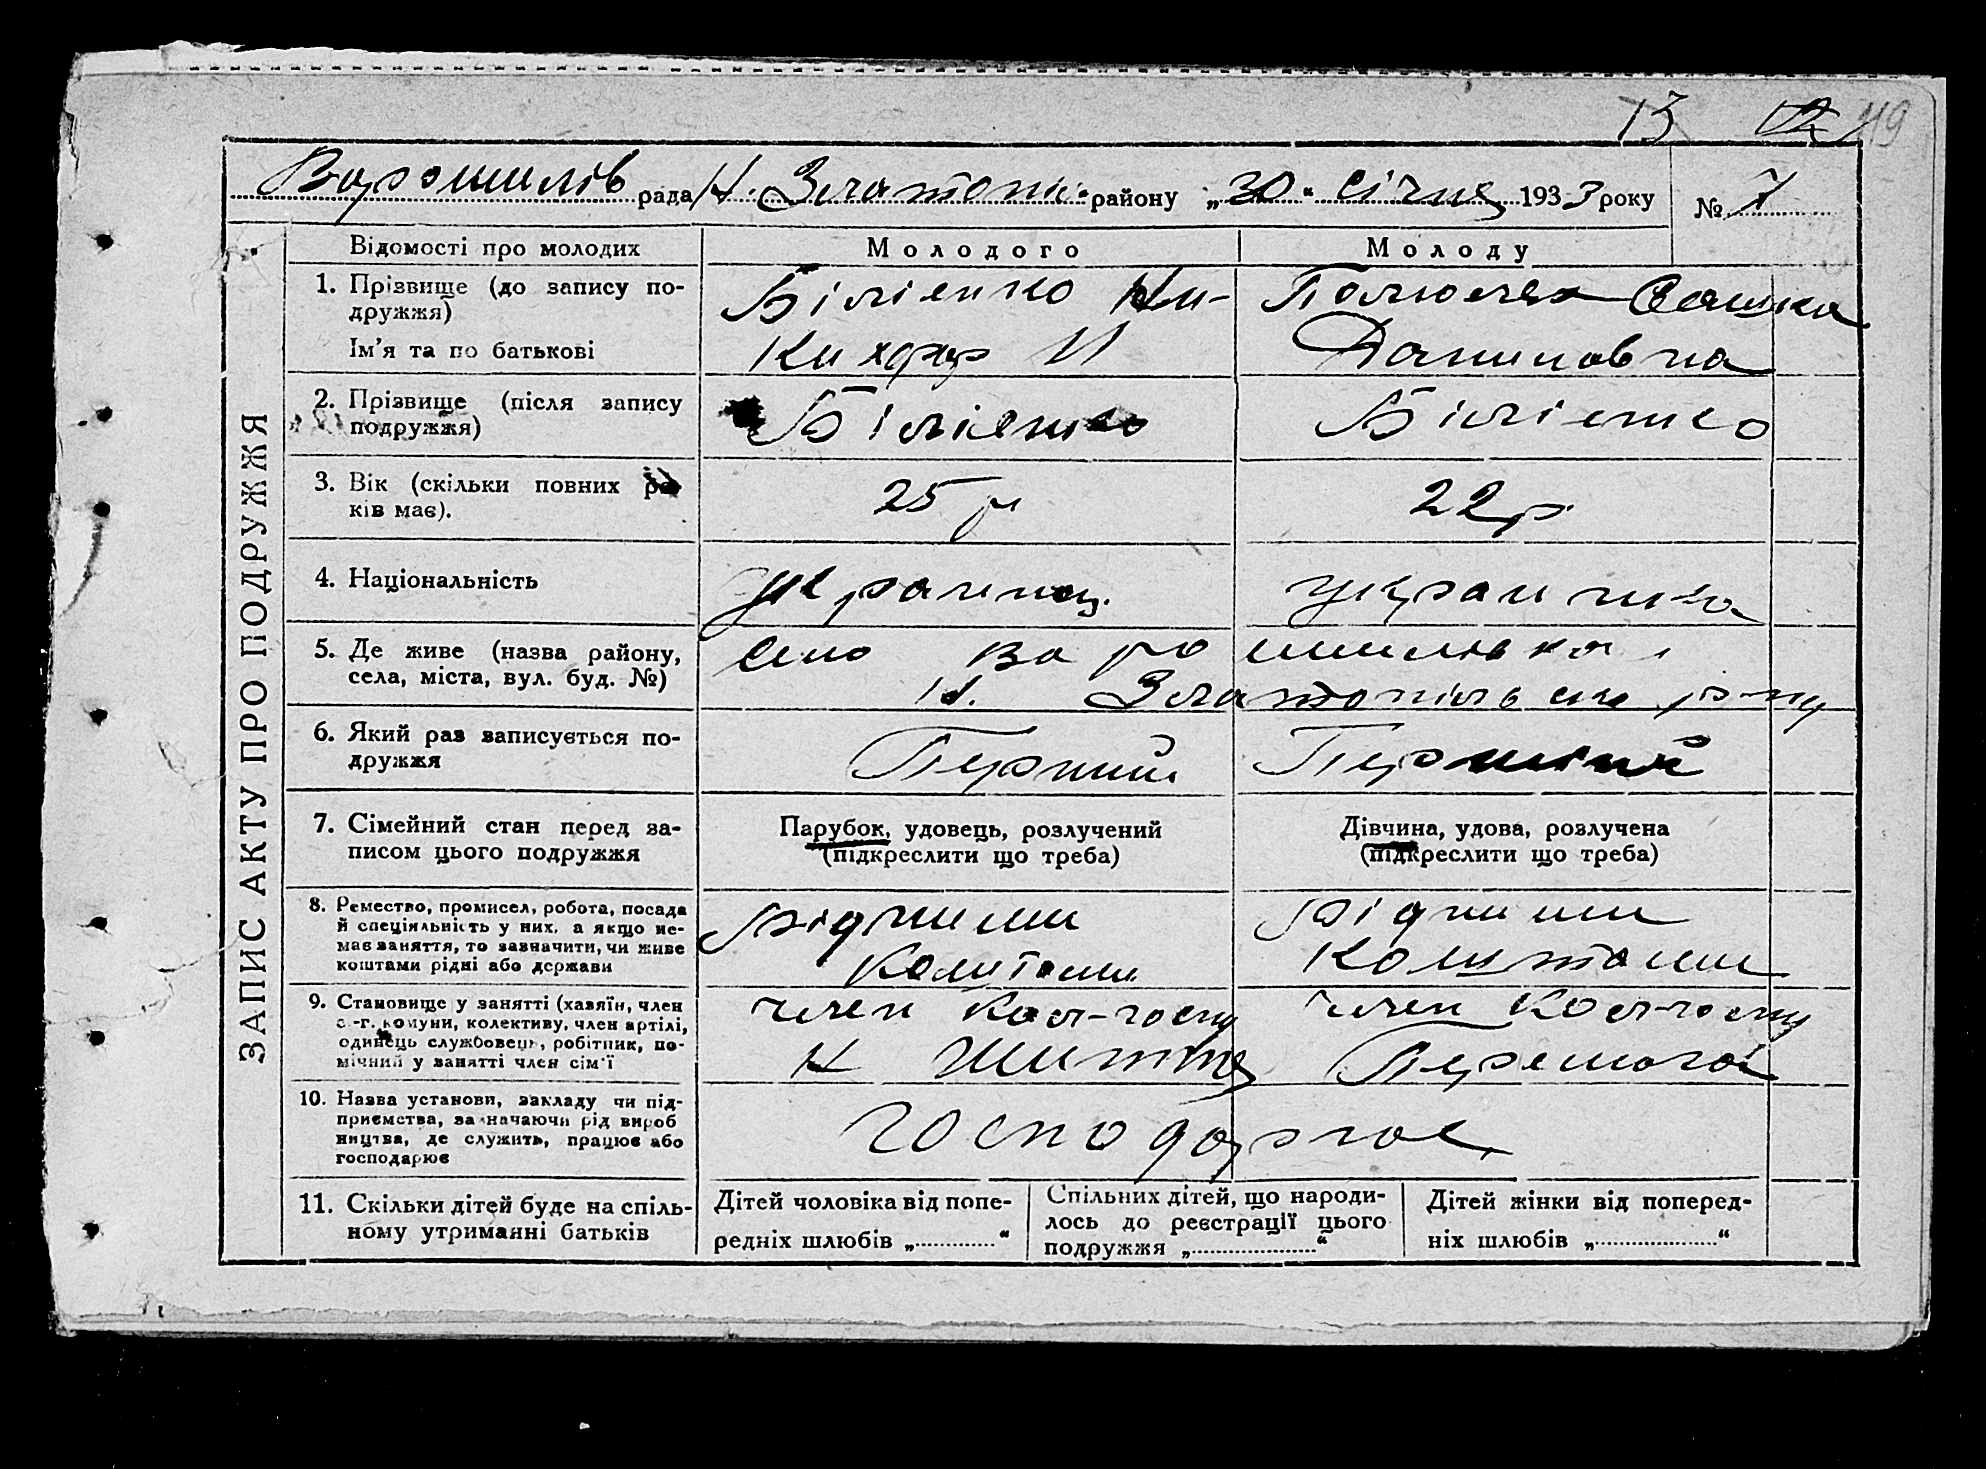 13 49
Ворошилів рада Н. Златопіль району „30“ січня 1933 року № 7
ЗАПИС АКТУ ПРО ПОДРУЖЖЯ
Відомості про молодих Молодого Молоду
1. Прізвище (до запису по-
дружжя)
Ім'я та по батькові
Біліенко Ни-
кихфор И
Сашка
Даниловна
2. Прізвище (після запису
подружжя)
Біліенко Біліенко
3. Вік (скільки повних ро-
ків має).
25 р 22 р
4. Національність
українец. украінка
5. Де живе (назва району,
села, міста, вул. буд. №)
село Ворошилівка
Н. Златопільське р-ну
6. Який раз записується по-
дружжя
Перший Перший
7. Сімейний стан перед за-
писом цього подружжя
Парубок, удовець, розлучений
(підкреслити що треба)
Дівчина, удова, розлучена
(підкреслити що треба)
8. Ремество, промисел, робота, посада
й спеціяльність у них, а якщо не-
має заняття, то зазначити, чи живе
коштами рідні або держави
рідними
коштами
рідними
коштами
9. Становище у занятті (хазяїн, член
с.-г. комуни, колективу, член артілі,
одинець службовець, робітник, по-
мічний у занятті член сім'ї
член кол-госпу
Н Життя
член кол-госпу
Перемога
10. Назва установи, закладу чи під-
приємства, зазначаючи рід вироб
ництва, де служить, працює або
господарює
господарює
11. Скільки дітей буде на спіль-
ному утриманні батьків
Дітей чоловіка від попе-
редніх шлюбів „............“
Спільних дітей, що народи-
лось до реєстрації цього
подружжя „....................“
Дітей жінки від поперед-
ніх шлюбів „....................“